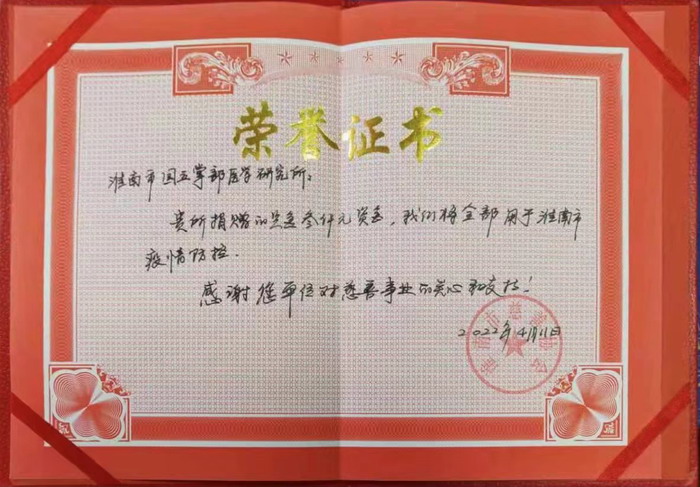 荣誉证书
淮南市国立掌部医学研究所:
贵所捐赠的叁仟元资金,我们将全部用于淮南市
疫情防控.
感谢 单位对慈善事业的关心和支持!
2022年4月11日
淮南市慈善协会